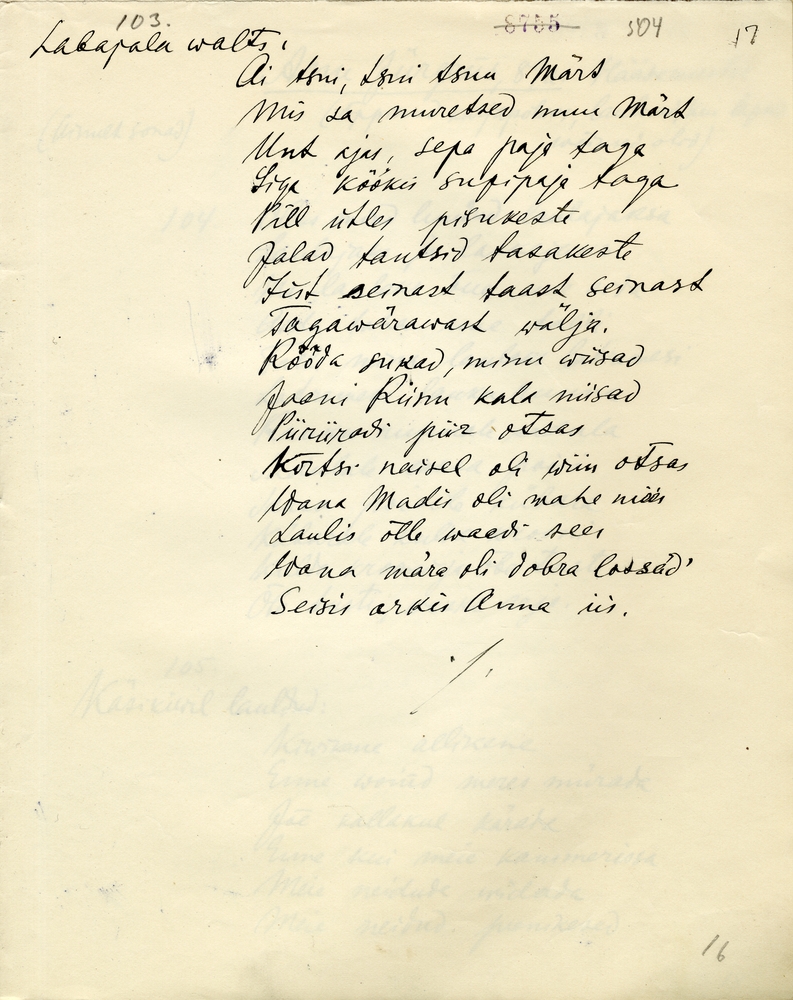 103.
8755
504
17
Labajala walts.
Ai tsni, tsni tsnu Märt
Mis sa muretsed muu Märt
Unt ajas, sepa paja taga
Siga köökis supipaja taga
Pill ütles pisukeste
Jalad tantsid tasakeste
Just seinast taast seinast
Tagawärawast wälja.
Rööda sukad, minu wiisad
Jaani Riinu kala niisad
Piiriiradi piir otsas
Kortsi naisel oli wiin otsas
Wana Madis oli mahe mees
Laulis õlle waadi sees
Wana mära oli dobra lossad'
Seisis arkis Anna iis.
16